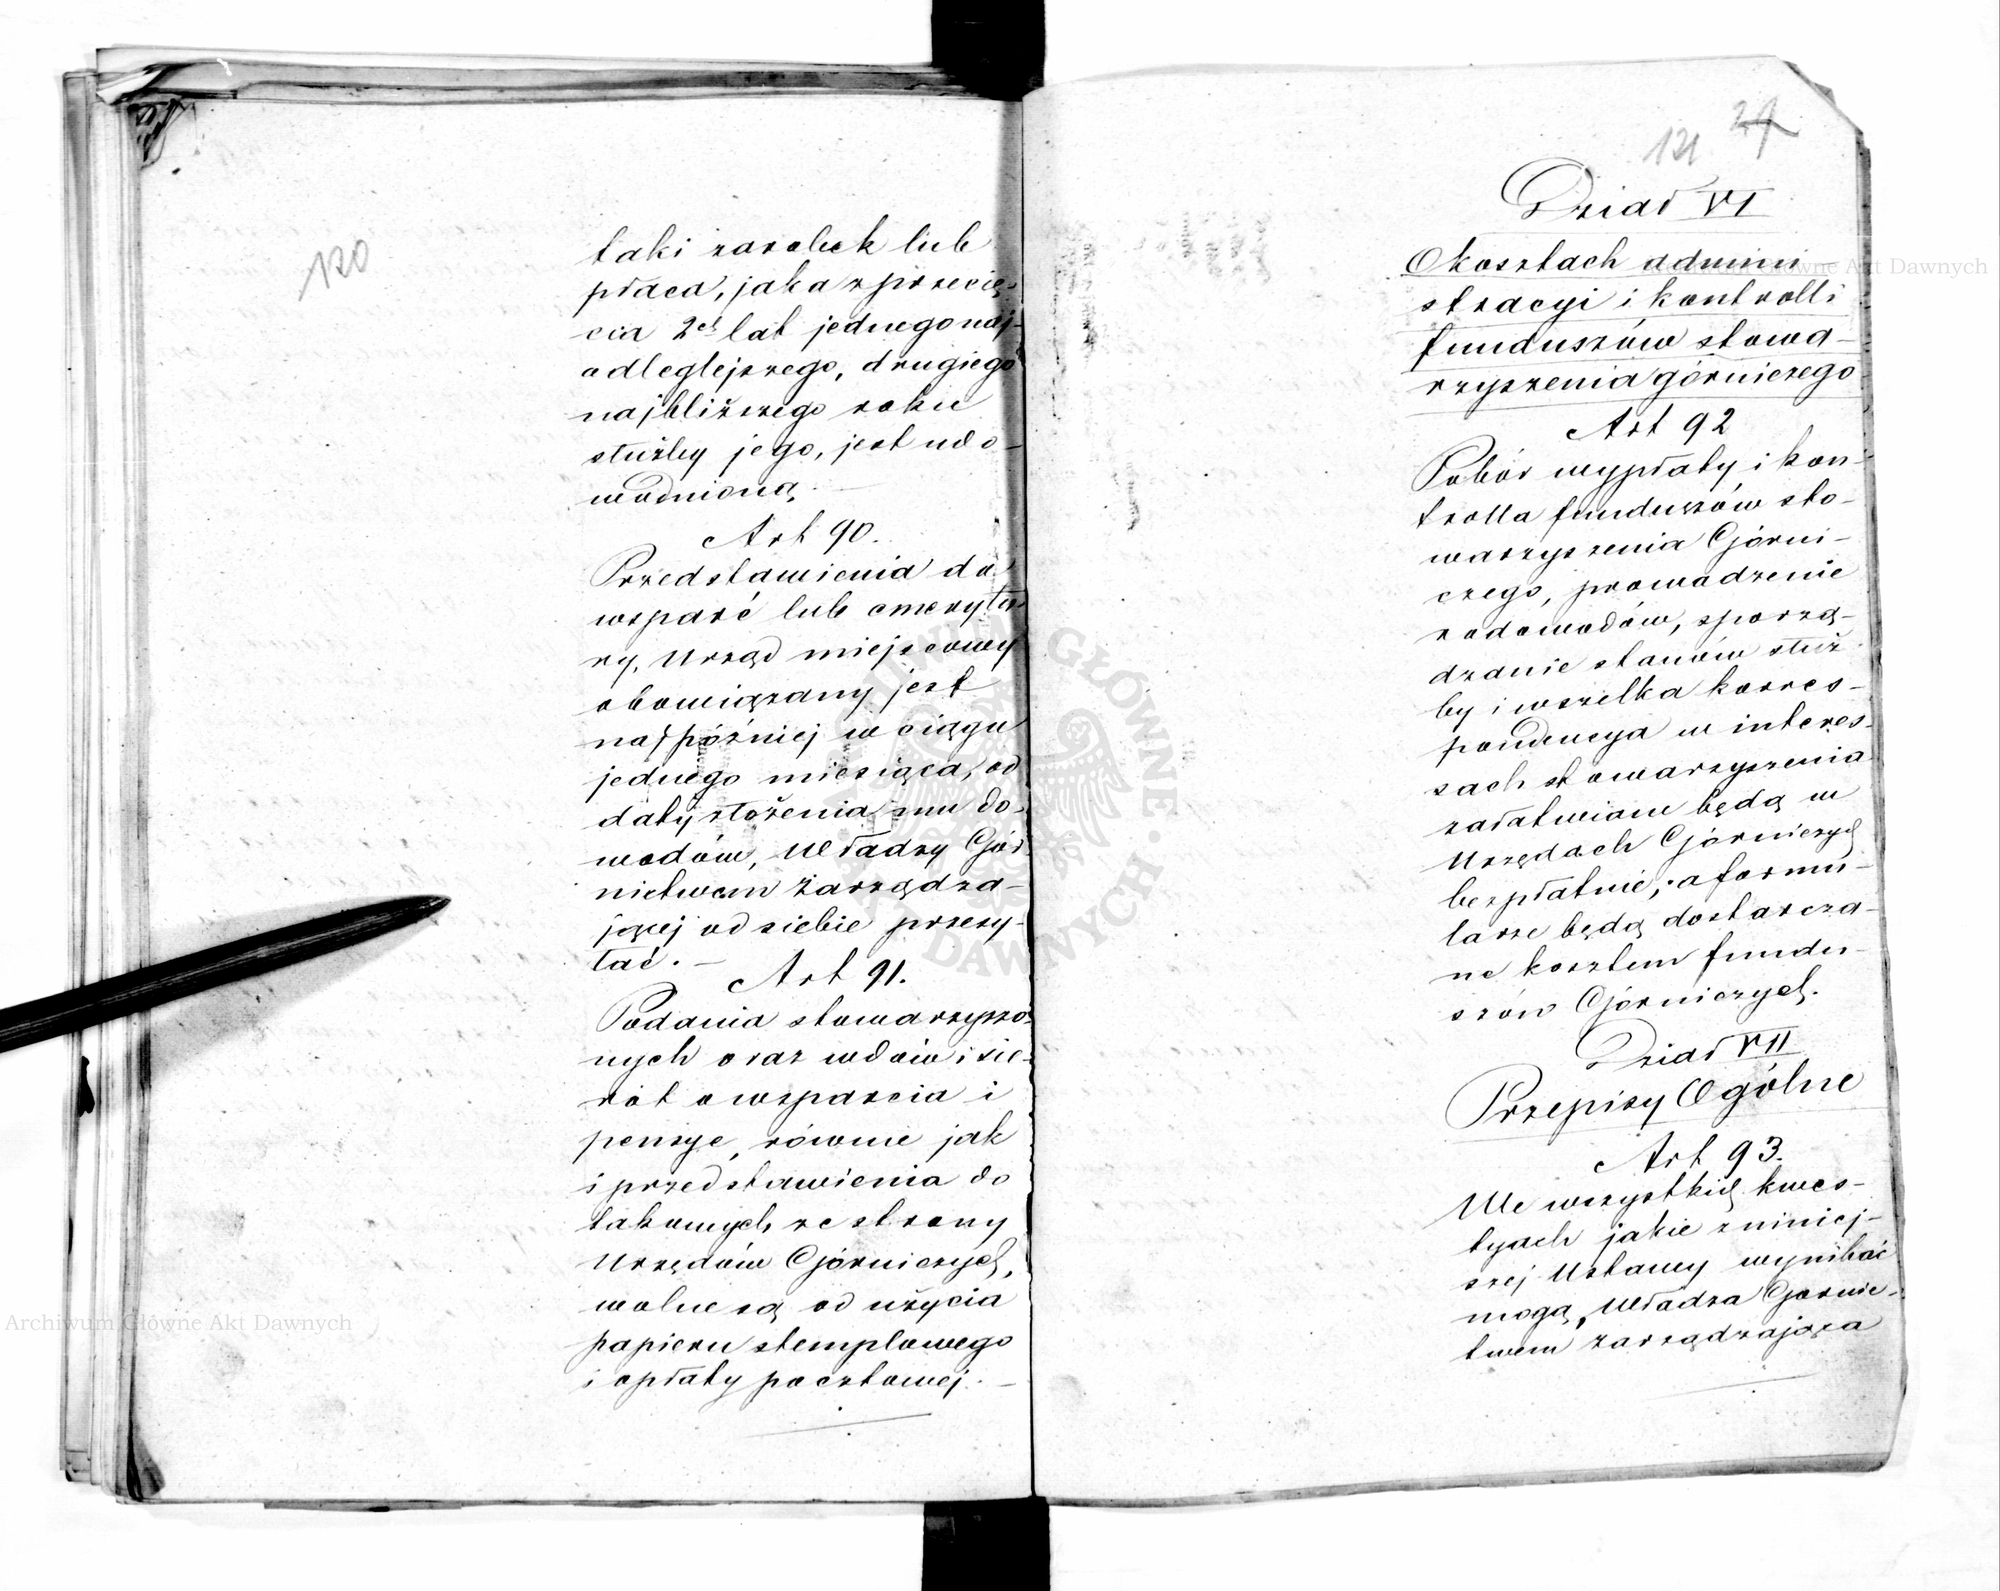 120
taki zarobek lub
płaca, jaka z przecię-
cia 2ch lat jednego naj-
odleglejszego, drugiego
najbliższego roku
służby jego, jest udo-
wodnioną. —
Art 90.
Przedstawienia do
wsparć lub emerytu
ry, Urząd miejscowy
obowiązany jest
najpóźniej w ciągu
jednego miesiąca, od
daty złożenia mu do-
wodów, Władzy Gór
nictwem Zarządza-
jącej od siebie przesy-
łać. —
Art 91.
Podania stowarzyszo-
nych oraz wdów i sie-
rót o wsparcia i
pensye, równie jak
i przedstawienia do
takowych ze strony
Urzędów Górniczych,
wolne są od użycia
papieru stemplowego
i opłaty pocztowej. —
121
Dział VI
O kosztach admini-
stracyi i kontrolli
funduszów stowa-
rzyszenia górniczego
Art 92
Pobór wypłaty i kon-
trolla funduszów sto-
warzyszenia Górni-
czego, prowadzenie
rodowodów, sporzą-
dzanie stanów służ
by i wszelka korres-
pondencya w interes-
sach stowarzyszenia
załatwiane będą w
Urzędach Górniczych
bezpłatnie, a formu-
larze będą dostarcza-
ne kosztem fundu-
szów Górniczych.
Dział VII
Przepisy Ogólne
Art 93.
We wszystkich kwes-
tyach jakie z niniej-
szej Ustawy wynikać
mogą, Władza Gornic-
twem zarządzająca
Archiwum Główne Akt Dawnych
Archiwum Główne Akt Dawnych
ARCHIWUM GŁÓWNE AKT DAWNYCH